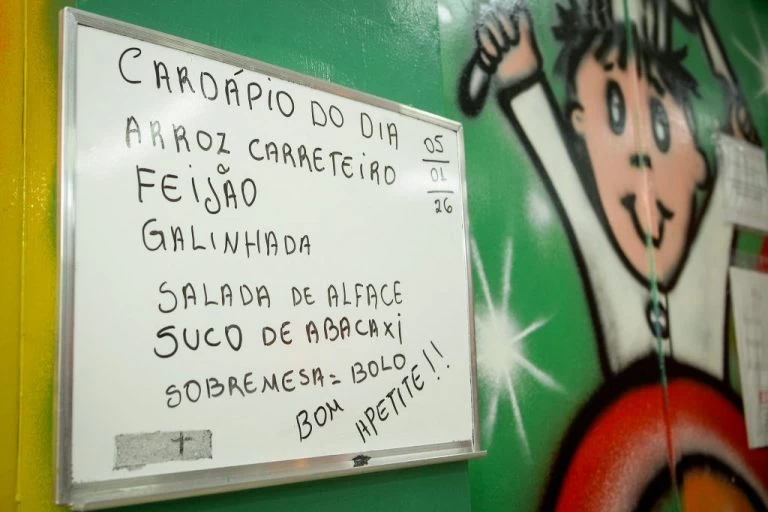 CARDÁPIO DO DIA
ARROZ CARRETEIRO
05
01
26
FEIJÃO
GALINHADA
SALADA DE ALFACE
SUCO DE ABACAXi
SOBREMESA= BOLO
BOM APETITE!!